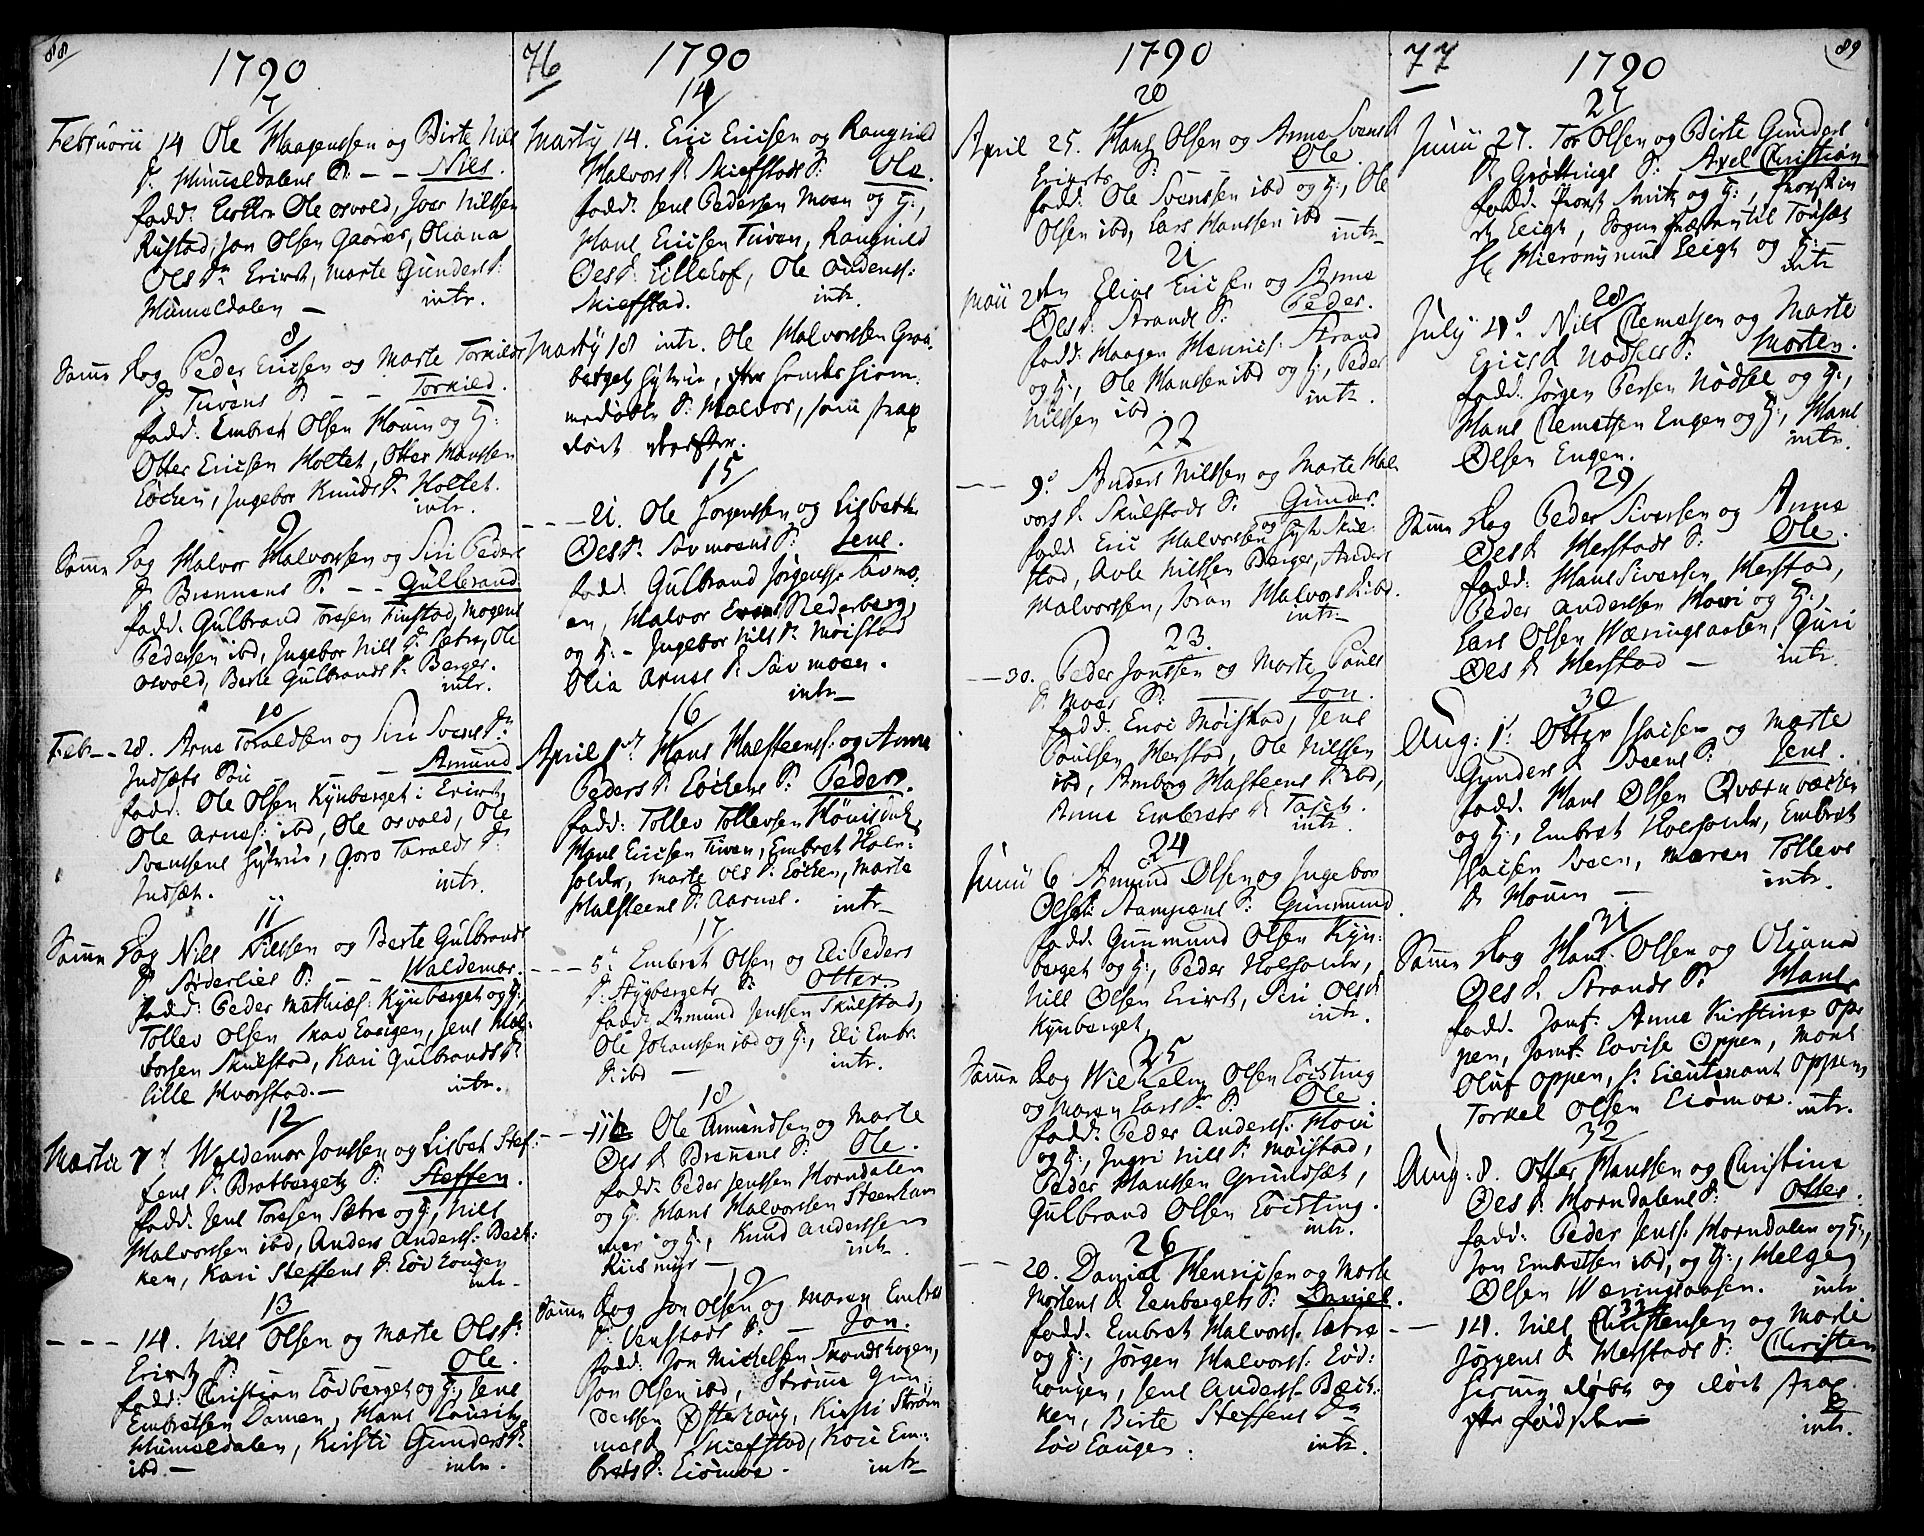 88
1790
7
Februarii 14 Ole Haagenssen og Birte Nils
D. Hummeldalens S: - - Nils.
fadd: Ole Osvold, Joer Nilssen
Rustad, Jon Olsen Gaarder, Oliana
Ols Dr Erirst, Marte Gunders D:
Hummeldalen - intr.
8
Samme Dag Peder Ericsen og Marte Torkilds
D. Tuvens S. - - Torkild.
fadd: Embret Olsen Houm og H:
Otter Ericsen Holtet, Otter Hanssen
Løcken, Ingebor Knuds D. Holtet.
intr.
9
Samme Dag Halvor Halvorssen og Siri Peders
D. Brennens S. - - Gulbrand
fadd. Gulbrand Toresen Finstad, Mogens
Pedersen ibd, Ingebor Nils D. Sætre, Ole
Osvold, Berte Gulbrands D. Berger.
intr.
10
Febr - - 28. Arne Toraldsen og Siri Svens Dr
Indsæts - - Amund
fadd: Ole Olsen Kynberget i Erirst,
Ole Arness: ibd, Ole Osvold, Ole
Svenssens Hustrue, Goro Toralds D:
Indsæt. intr.
11
Samme Dag Nils Nilssen og Berte Gulbrands
D. Sørderlies S. - - Waldemar.
fadd: Peder Mathias: Kynberget og H:,
Tollev Olsen, Jens Hal-
vorsen Skulstad, Kari Gulbrands D.
Lille Hvorstad. - intr.
12
Martii 7d Waldemar Jonssen og Lisbet Stef-
fens D. Bratbergets S. Steffen.
fadd. Jens Toresen Sætre og H:, Nils
Halvorssen ibd, Anders Anderss: Bæk-
ken, Kari Steffens D. Løvlougen
intr.
13
- - - 14. Nils Olsen og Marte Ols Dr
Erirst S. Ole.
fadd: Christian Løvberget og H:, Jens
Embretsen Damen, Hans Lauritz
Hummeldalen, Kirsti Gunders D.
ibd. - intr.
76
1790
14
Martij 14. Eric Ericsen og Rangnild
Halvors D. Skiefstads S. Ole.
fadd: Jens Pedersen Moen og H:,
Hans Ericsen Tuven, Rangnild
Oles D. Lillehof, Ole Audenss:
Skiefstad. intr.
Martij 18 intr. Ole Halvorssen Graa-
bergets Hustrue, efter hendes hiem-
medøbte S. Halvor, som strax
døde derefter.
15
- - - 21. Ole Jørgenssen og Lisbeth
Oles D. Savmoens S: Jens.
fadd. Gulbrand Jørgenss: Savmo-
en, Halvor Nederberg,
og H: - Ingebor Nils D. Møistad
Olia Arnes D. Savmoen.
intr
16
April 1ste Hans Halsteenss: og Anne
Peders D. Løckens S. Peder.
fadd: Tollev Tollevsen
Hans Ericsen Tuven, Embret Hol-
, Marte Oles D. Løcken, Marte
Halsteens D. Aarnes. intr
17
- - - 5. Embret Olsen og Eli Peders
D. Stygbergets S. Otter.
fadd: Amund Jenssen Skulstad,
Ole Johanssen ibd og H:, Eli Embr:
D. ibd - intr.
18
- - - 11 Ole Amundsen og Marte
Oes D. Brenens S. Ole.
fadd: Peder Jenssen Horndalen
og H: Hans Halvorssen Steenham
mer og H:, Knud Anderssen
Riismyr - intr.
19
Samme Dag Jon Olsen og Maren Embrets
D. Venstads S. - Jon.
fadd: Jon Mickelsen Skandshogen,
Jon Olsen ibd, Strøms Gun-
derssen Østeraug, Kirsti Strøm
mes D. Skiefstad, Kari Em-
brets D. Eiømoe - intr
1790
20
April 25. Hans Olsen og Anne Svens D
Erirsts S. Ole.
fadd: Ole Svenssen ibd og H:, Ole
Olsen ibd, Lars Hanssen ibd
intr
21
Maii 2den Elias Ericsen og Anne
Oes D. Strands S. Peder.
fadd: Haagen Henrics: Strand
og H:, Ole Hanssen ibd og H:, Peder
Nilssen ibd. intr.
22
- - 9d Anders Nilssen og Marte Hal-
vors D. Skulstads S. Gunder.
fadd Eric Halvorssen og Hst Skul-
stad, Avle Nilssen Berger, Anders
Halvorssen, Goran Halvors D. ibd.
intr
23.
- - 30. Peder Jonssen og Marte Pouls
D. Moes S: Jon.
fadd. Enoc Møistad, Jens
Poulsen Herstad, Ole Nilssen
ibd, Amborg Halsteens D. ibd,
Anne Embrets D. Taset.
intr.
24
Junii 6 Amund Olsen og Ingebor
Oles D: Stampens S. Gunmund.
fadd. Gunmund Olsen Kyn-
berget og H:, Peder,
Nils Olsen Erirst, Siri Oles D
Kynberget. intr.
25
Samme Dag Wilhelm Olsen Løisting
og Maren Lars Dr S. Ole.
fadd: Peder Anderss: Hovi
og H:, Ingri Nils D. Møistad,
Peder Hanssen Grundset,
Gulbrand Olsen Løisting.
intr.
26
- - 20. Daniel Henricsen og Marte
Mortens D. Lenbergets S. Daniel.
fadd. Embret Halvorss: Sætre
og H:, Jørgen Halvorss: Løv-
lougen, Jens Anderss: Bæk-
ken, Birte Steffens Dr
Løvlougen. intr.
77
89
1790
27
Junii 27. Tor Olsen og Birte Gunders
D. Grøttings S. Axel Christian
fadd: Provst Smith og H:, Provstin
de Leigh, Sogne Præsten til Tønset
Hr Hieronymus Leigh og H:
intr
28
July 4d Nils Clemetsen og Marte
Erics D Nødsets S: Morten.
fadd: Jørgen Persen Nødset og H:,
Hans Clemetsen Engen og H:, Hans
Olsen Engen. intr.
29
Samme Dag Peder Siverssen og Anne
Oes D Herstads S. Ole.
fadd: Hans Siverssen Herstad,
Peder Anderssen Hovi og H:,
Lars Olsen Wæringsaasen, Guri
Oes D Herstad - intr.
30
Aug: 1d Otter Isacsen og Marte
Gunders D Sveens S: Jens.
fadd. Hans Olsen Qværnbæcken
og H:, Embret, Embret
Isacsen Sveen, Maren Tollevs
D Houm - intr.
31
Samme Dag Hans Olsen og Oliana
Oes D. Strands S. Hans
fadd. Jomf: Anne Kirstine Op-
pen, Jomf: Lovise Oppen, Mons
Oluf Oppen, Sr Lieutenant Oppen,
Torkel Olsen Eiømoe. intr.
32
Aug: 8. Otter Hanssen og Christine
Oes D Horndalens S. Otter.
fadd: Peder Jenss: Horndalen og H:,
Jon Embretsen ibd, og H:, Helge
Olsen Wæringsaasen. intr
33
- - 14. Nils Christensen og Marte
Jørgens D Herstads S. Christen
hiemme døbt og død strax
efter fødselen
intr.